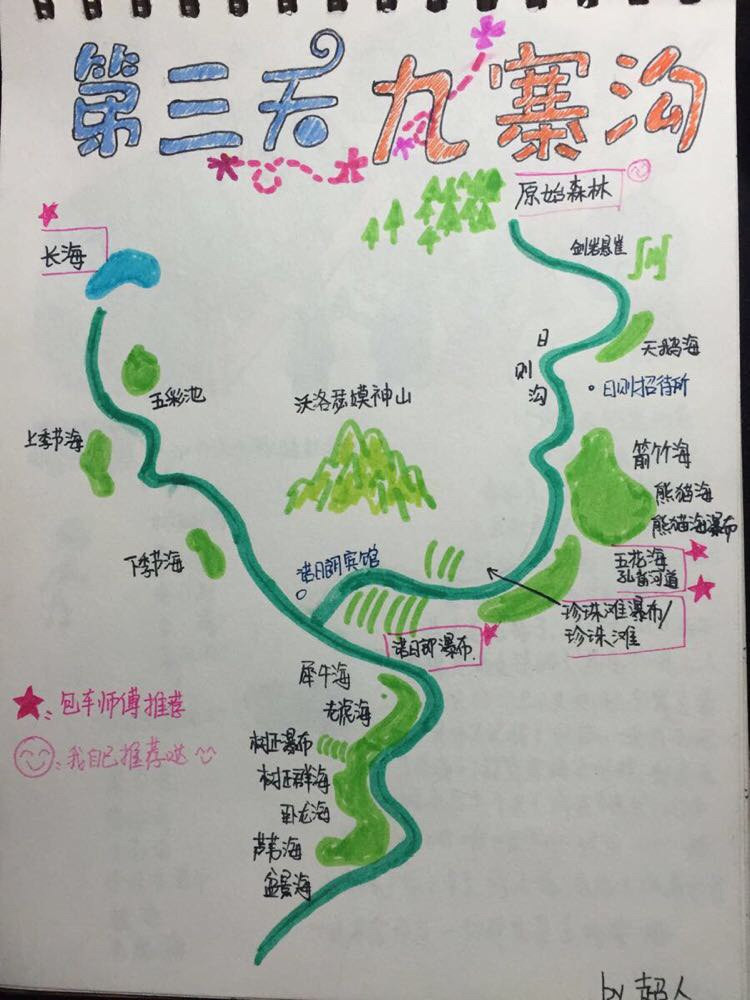 第三天 九寨沟
原始森林
长海
剑岩悬崖
天鹅海
日则沟
日则招待所
五彩池
沃洛瑟嫫神山
上季节海
箭竹海
熊猫海
熊猫海瀑布
下季节海
诺日朗宾馆
五花海
孔雀河道
珍珠滩瀑布/
珍珠滩
诺日郎瀑布
犀牛海
老虎海
★:包车师傅推荐
树正瀑布
:我自己推荐哒
树正群海
卧龙海
芦苇海
盆景海
by 超人